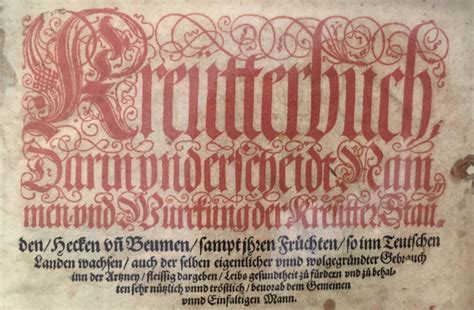 Kreutterbuch,
Darin underscheidt Nam-
men und Würckung der Kreutter Stau-
den / Hecken vñ Beumen / sampt jhren Früchten / so inn Teutschen
Landen wachsen / auch der selben eigentlicher vnnd wolgegründter Gebrauch
inn der Artzney / fleissig dargeben / Leibs gesundtheit zů fürdern vnd zů behal-
ten sehr nützlich vnnd tröstlich / beuorab dem Gemeinen
vnnd Einfaltigen Mann.